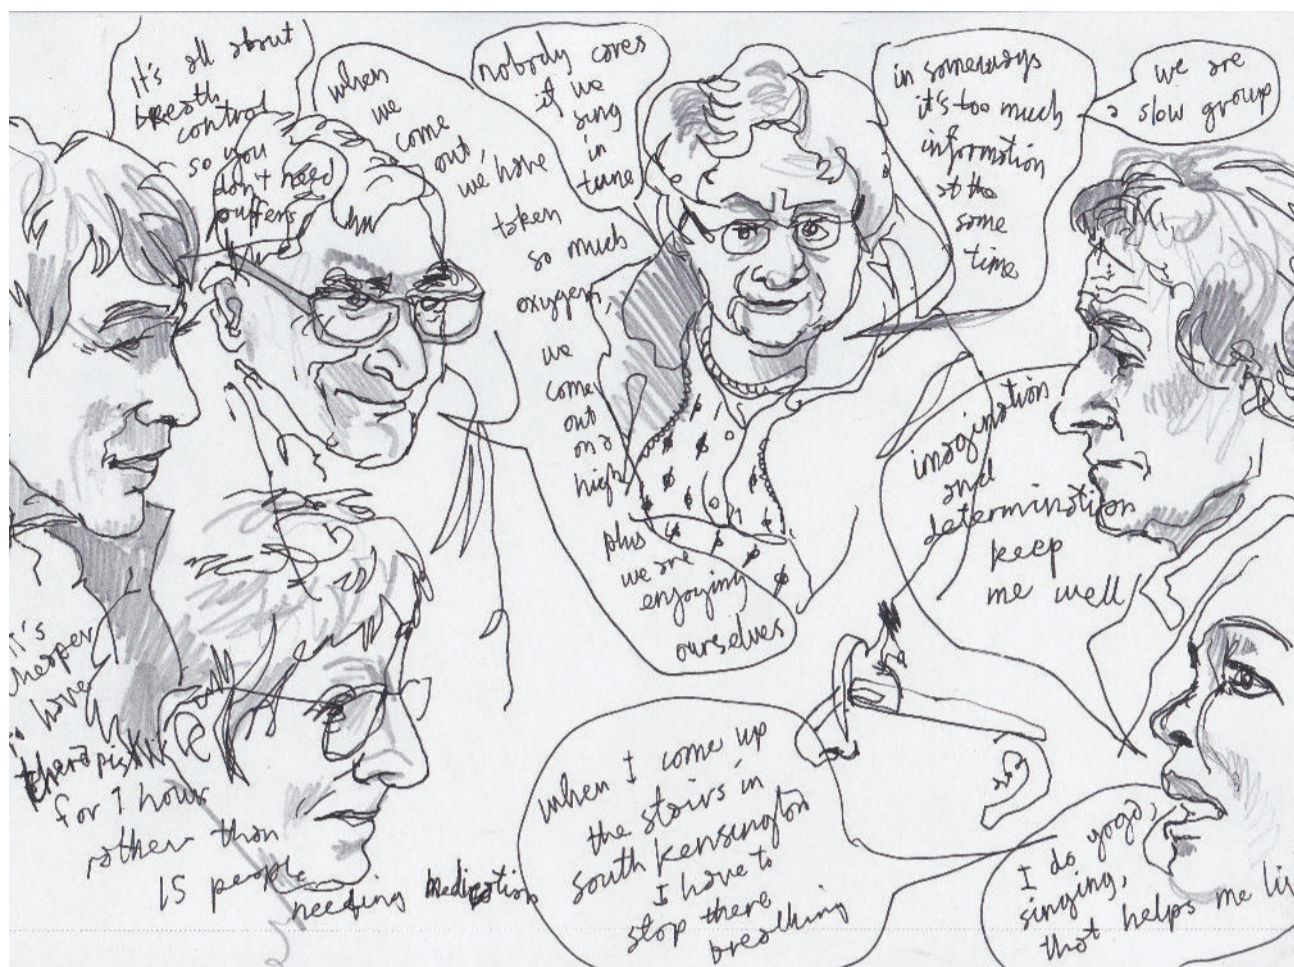 it's all about
breath
control
so you
don't need
puffers
when
we
come
out,
we have
taken
so much
oxygen,
we
come
out
on a
high
plus
we are
enjoying
ourselves
nobody cares
if we
sing
in
tune
in someways
it's too much
information
at the
same
time
we are
a slow group
imagination
and
determination
keep
me well
it's
cheaper
to have
therapist
for 1 hour
rather than
15 people
needing medication
when I come up
the stairs in
south kensington
I have to
stop there
breathing
I do yoga,
singing,
that helps me